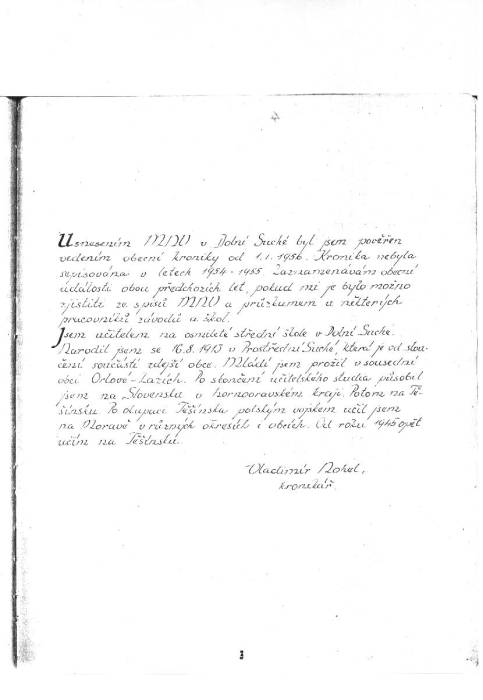 4
Usnesením MNV v Dolní Suché byl jsem pověřen
vedením obecní kroniky od 1.1.1956. Kronika nebyla
sepisována v letech 1954-1955. Zaznamenávám obecní
události obou předchozích let, pokud mi je bylo možno
zjistiti ze spisů MNV a průzkumem u některých
pracovníků závodů a škol.
Jsem učitelem na osmileté střední škole v Dolní Suché.
Narodil jsem se 16.8.1913 v Prostřední Suché, která je od slou-
čení součástí zdejší obce. Mládí jsem prožil v sousední
obci Orlové-Lazích. Po skončení učitelského studia působil
jsem na Slovensku v hornooravském kraji. Potom na Tě-
šínsku. Po okupaci Těšínska polským vojskem učil jsem
na Moravě v různých okresích i obcích. Od roku 1945 opět
učím na Těšínsku.
Vladimír
kronikář.